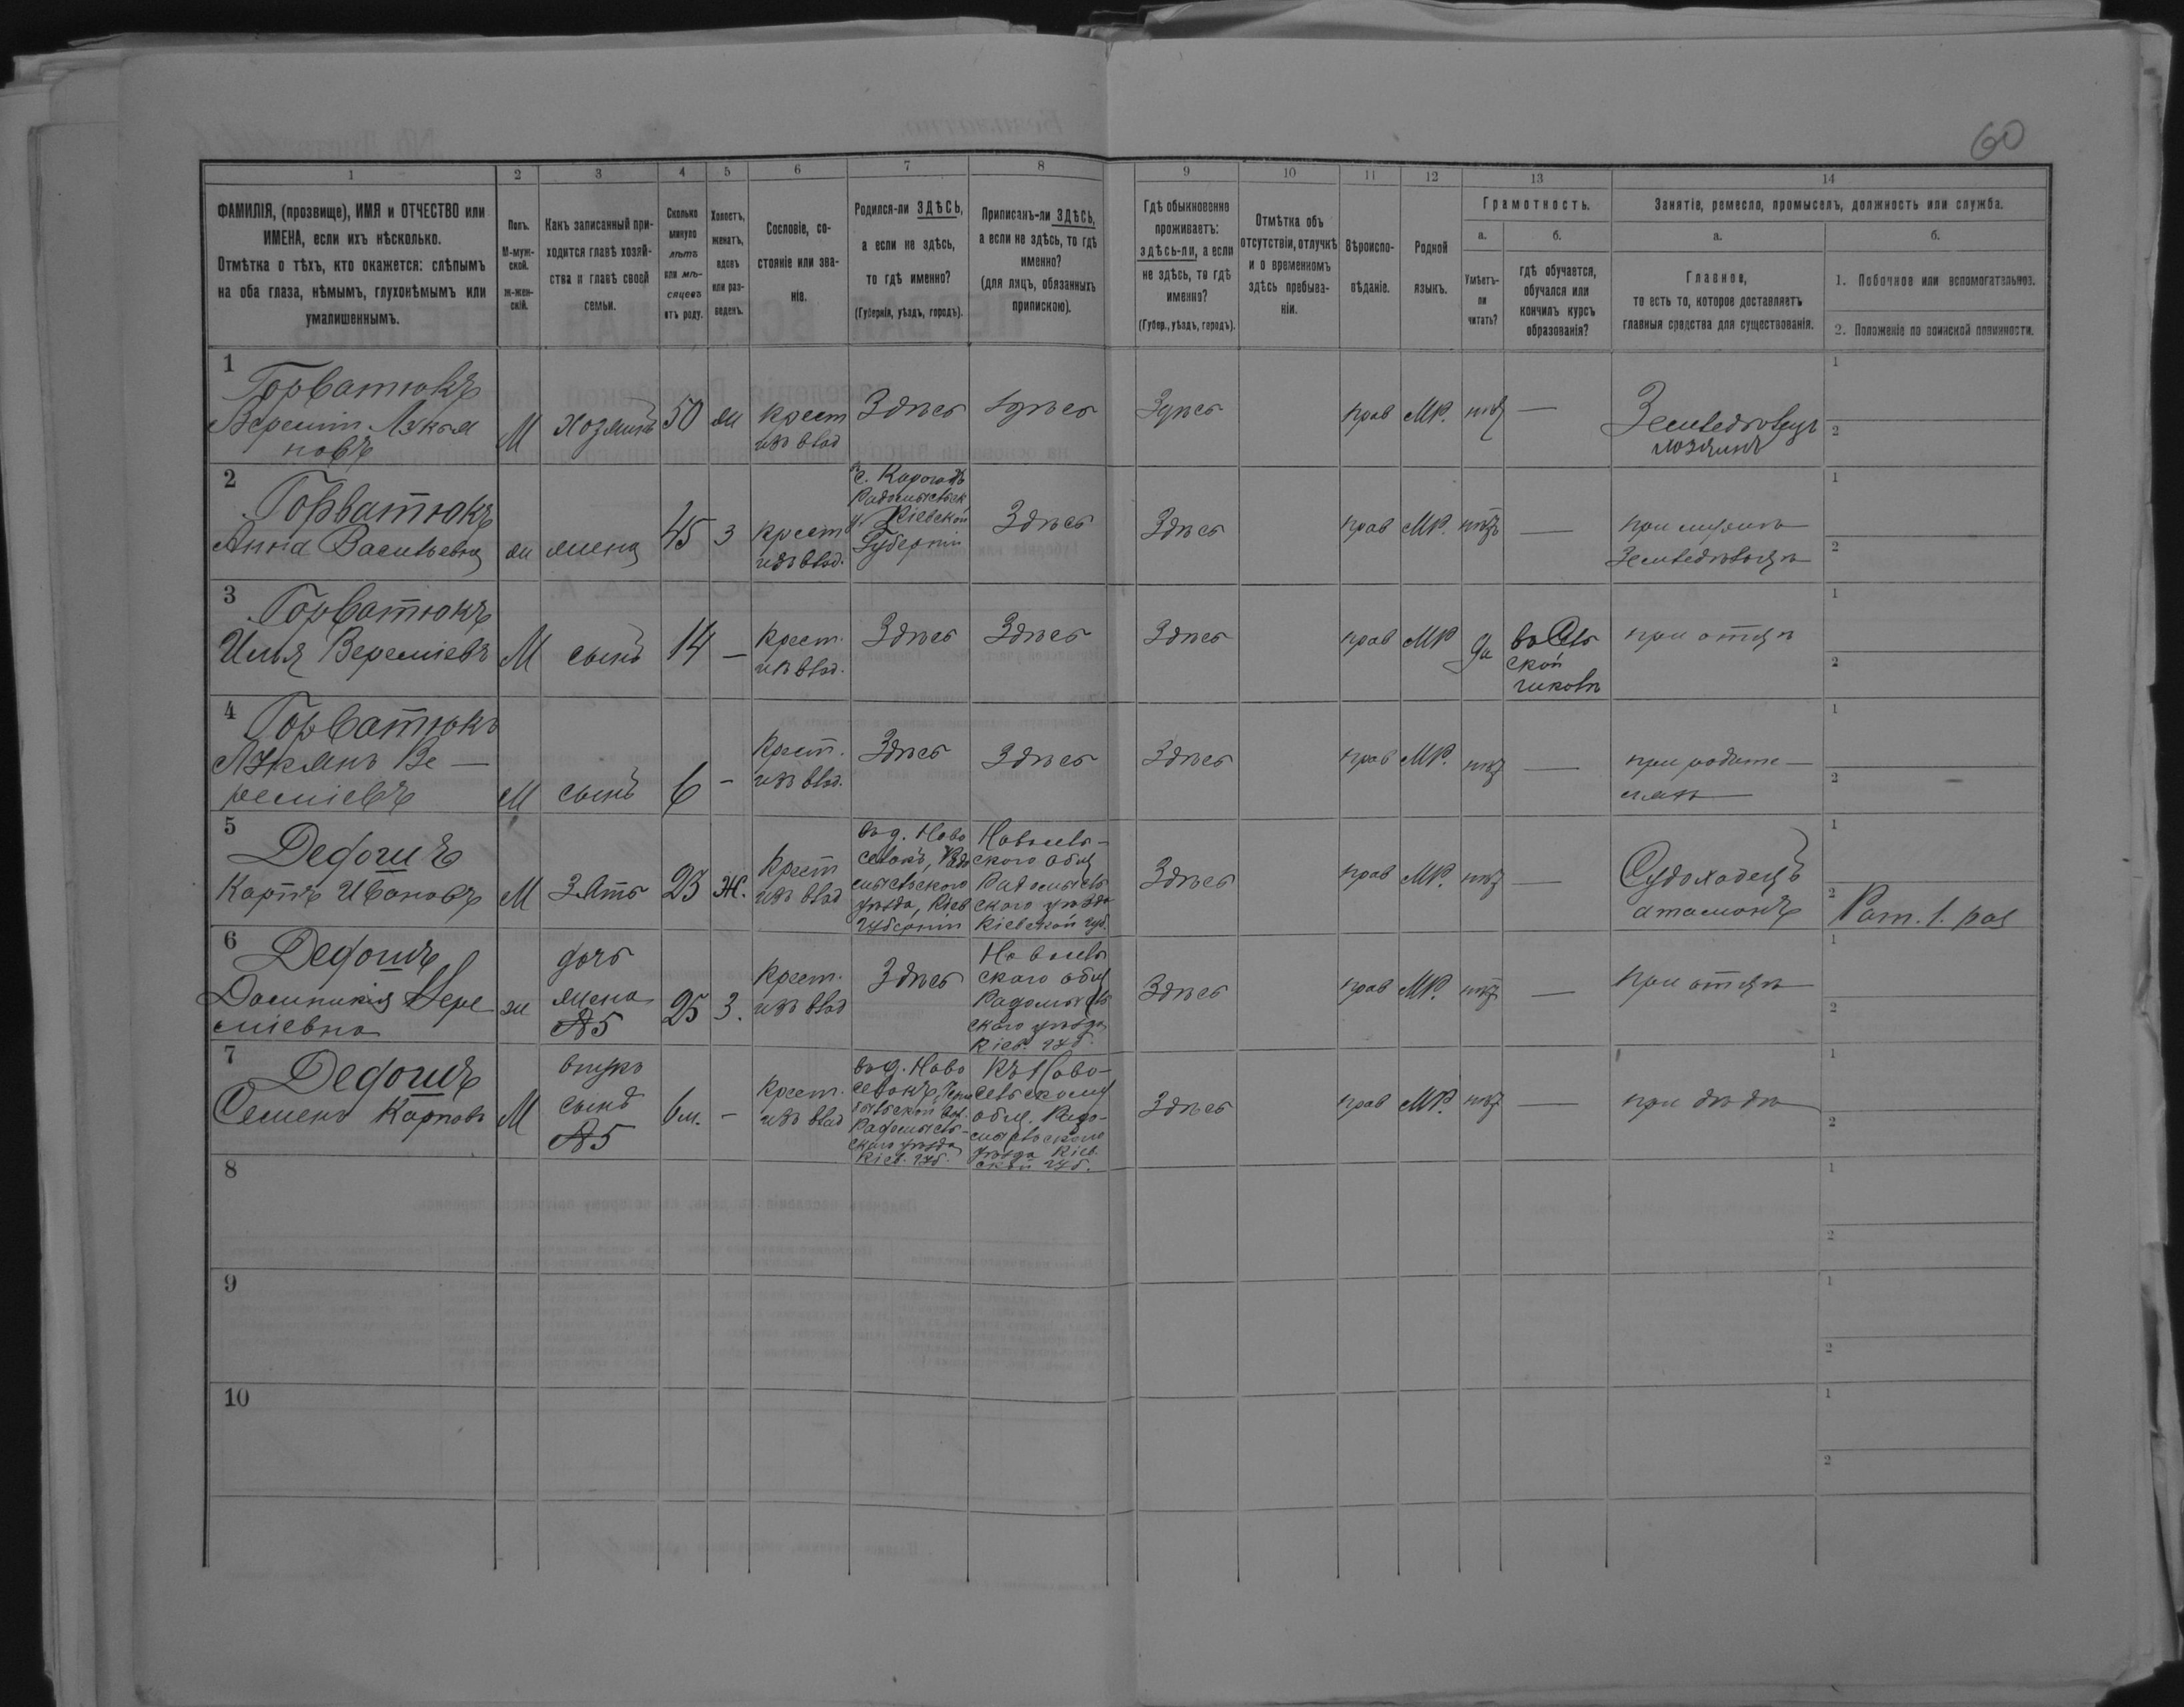 60
1 2 3 4 5 6 7 8 9 10 11 12 13 14
ФАМИЛІЯ, (прозвище), ИМЯ и ОТЧЕСТВО или
ИМЕНА, если ихъ нѣсколько.
Отмѣтка о тѣхъ, кто окажется: слѣпымъ
на оба глаза, нѣмымъ, глухонѣмымъ или
умалишеннымъ.
Полъ.
М-муж-
ской.
Ж-жен-
скій.
Какъ записанный при-
ходится главѣ хозяй-
ства и главѣ своей
семьи.
Сколько
минуло
лѣтъ
или мѣ-
сяцевъ
отъ роду.
Холостъ,
женатъ,
вдовъ
или раз-
веденъ.
Сословіе, со-
стояніе или зва-
ніе.
Родился-ли ЗДѢСЬ,
а если не здѣсь,
то гдѣ именно?
(Губернія, уѣздъ, городъ).
Приписанъ-ли ЗДѢСЬ,
а если не здѣсь, то гдѣ
именно?
(для лицъ, обязанныхъ
припискою).
Гдѣ обыкновенно
проживаетъ:
здѣсь-ли, а если
не здѣсь, то гдѣ
именно?
(Губер., уѣздъ, городъ).
Отмѣтка объ
отсутствіи, отлучкѣ
и о временномъ
здѣсь пребыва-
ніи.
Вѣроиспо-
вѣданіе.
Родной
языкъ.
Грамотность.
а.
Умѣетъ-
ли
читать?
б.
гдѣ обучается,
обучался или
кончилъ курсъ
образованія?
Занятіе, ремесло, промыселъ, должность или служба.
а.
Главное,
то есть то, которое доставляетъ
главныя средства для существованія.
б.
1. Побочное или вспомогательное.
2. Положеніе по воинской повинности.
1
Горватюкъ
Веремій Лукья
новъ
М
хозяинъ
50
ж
крест
изъ влад
Здѣсь
Здѣсь
Здѣсь
прав
МР.
нѣт
—
Земледѣлецъ
хозяинъ
1
2
2
Горватюкъ
Анна Васильевна
ж
жена
45
З
крест
изъ влад.
Радомысльск
у. Кіевской
Губерніи
Здѣсь
Здѣсь
прав
МР.
нѣтъ
—
при мужѣ
Земледѣльцѣ
1
2
3
Горватюкъ
Илья Веремієвъ
М
сынъ
14
—
Крест.
изъ влад.
Здѣсь
Здѣсь
Здѣсь
прав
МР
да
въ Сель
ской
школѣ
при отцѣ
1
2
4
Горватюкъ
Лукьянъ Ве —
реміевъ
М
сынъ
6
-
Крест.
изъ влад.
Здѣсь
Здѣсь
Здѣсь
прав
МР.
нѣт
—
при родите —
ляхъ
1
2
5
Дедошъ
Карпъ Ивановъ
М
Зять
23
Ж.
Крест
изъ влад
въ д. Ново
селокъ, Радо
мысльского
уѣзда, Кіев
губерніи
Новосель-
ского общ
Радомысль
ского уѣзда
Кіевской губ.
Здѣсь
прав
МР.
нѣт
—
Судоходецъ
атаманъ
1
2
Рат. 1. раз
6
Дедошъ
Доминикія Вере
міевна
ж
дочь
жена
№5
25
З.
Крест.
изъ влад
Здѣсь
Новосель
ского общ
Радомысль
ского уѣзда
Кіев. губ.
Здѣсь
прав
МР.
нѣт
—
при отцѣ
1
2
7
Дедошъ
Семенъ Карповъ
М
внукъ
сынъ
№5
6 м.
-
Крест.
изъ влад
въ д. Ново
селокъ, Черно
быльской вол.
Радомысль-
ского уѣзда
Кіев. губ.
Къ Ново-
сельскому
общ. Радо-
мысльского
уѣзда Кіев
ской губ.
Здѣсь
прав
МР.
нѣт
—
при дѣдѣ
1
2
8
1
2
9
1
2
10
1
2